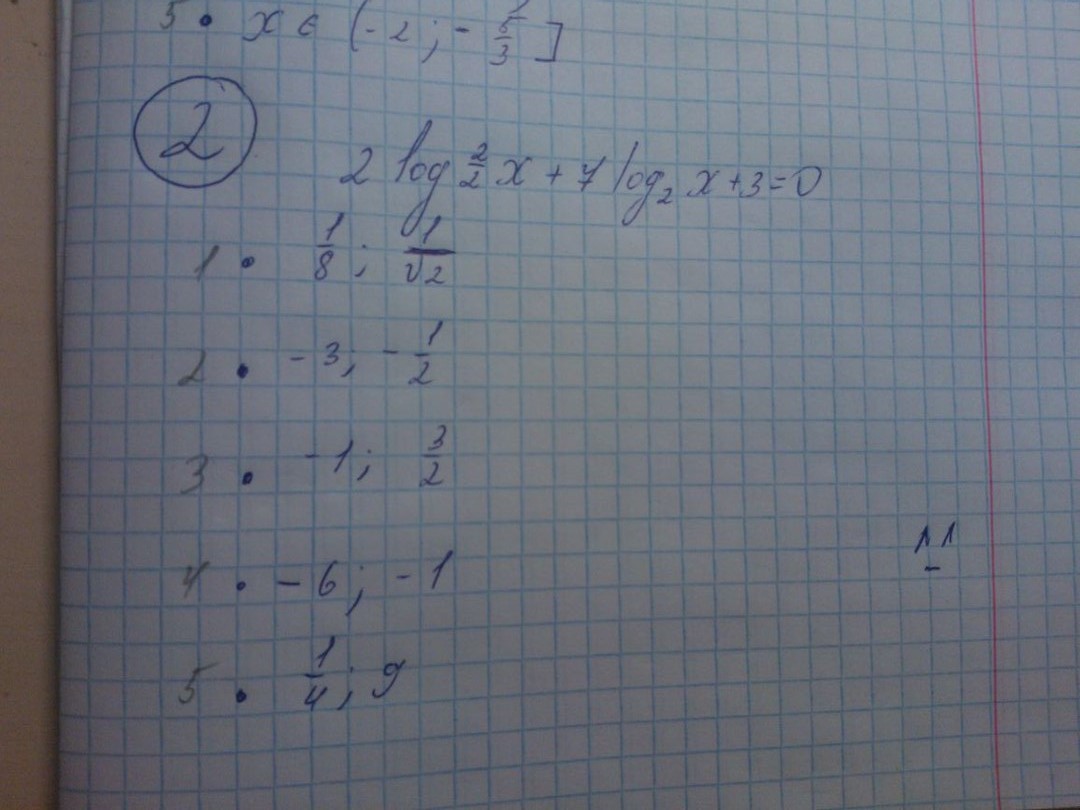 5 • x ∈ (-2 ; - 5/3 ]
2
2 log²₂ x + 7 log₂ x + 3 = 0
1 • 1/8 ; 1/√2
2 • -3; - 1/2
3 • -1 ; 3/2
4 • -6 ; -1
5 • 1/4 ; 9